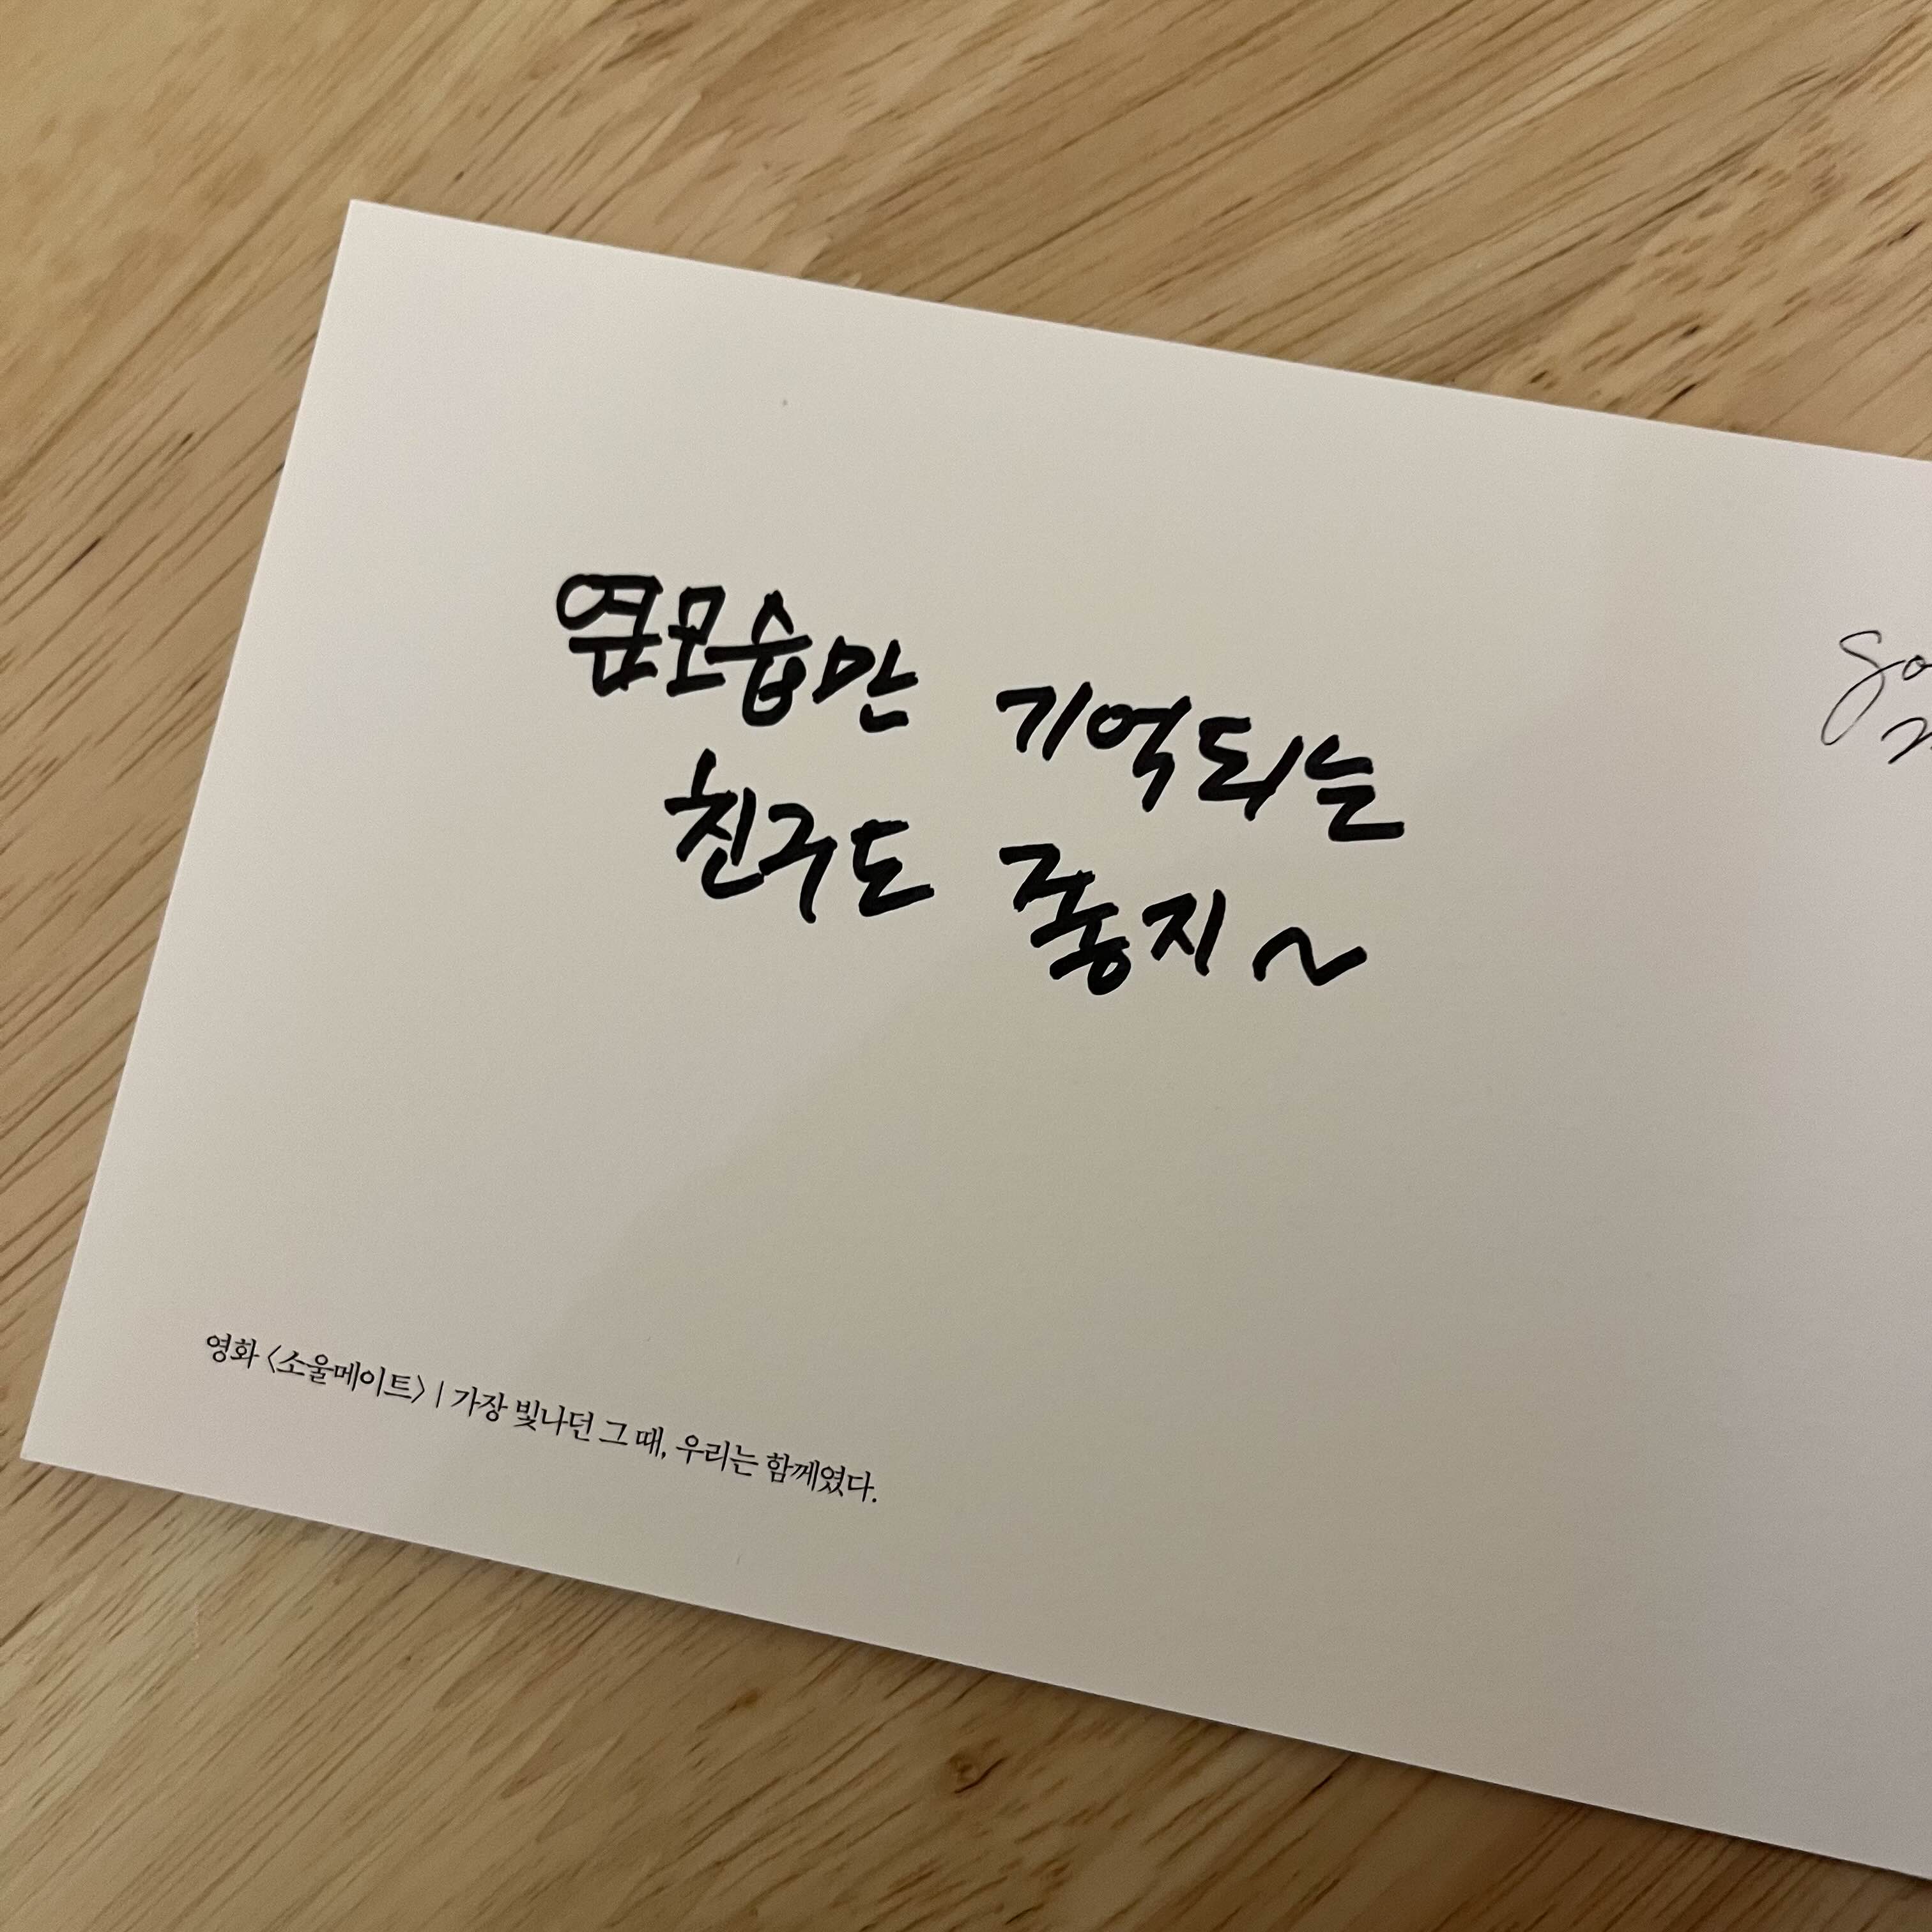 옆모습만 기억되는
친구도 좋지~
영화 <소울메이트> | 가장 빛나던 그 때, 우리는 함께였다.